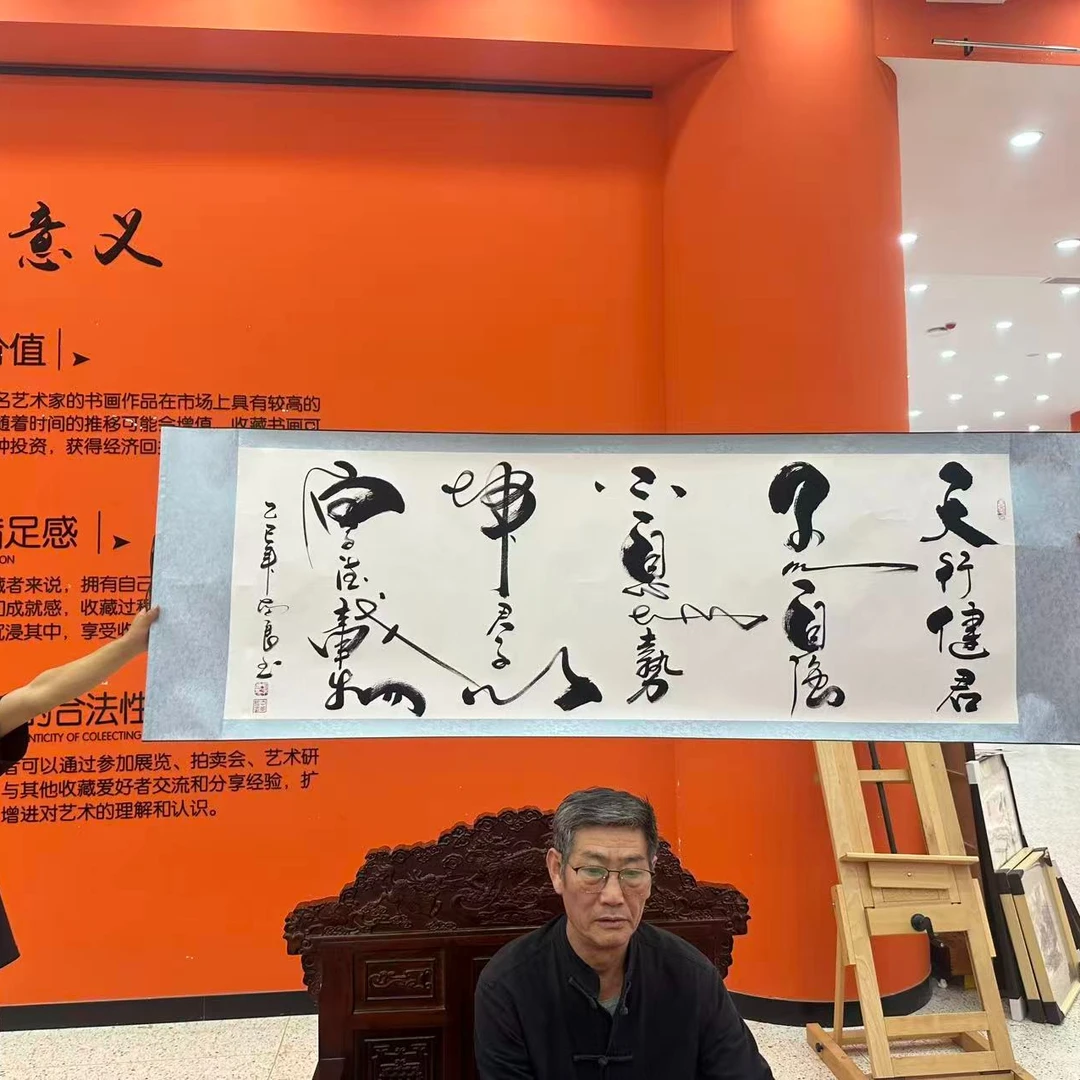 意义
价值
名艺术家的书画作品在市场上具有较高的
随着时间的推移可能会增值，收藏书画可
种投资，获得经济回
满足感
ON
藏者来说，拥有自己
和成就感，收藏过程
沉浸其中，享受收
的合法性
NTICITY OF COLEECTING
者可以通过参加展览、拍卖会、艺术研
与其他收藏爱好者交流和分享经验，扩
增进对艺术的理解和认识。
天行健君
子以自强
不息地勢
坤君子以
厚德載物
乙巳年
良书